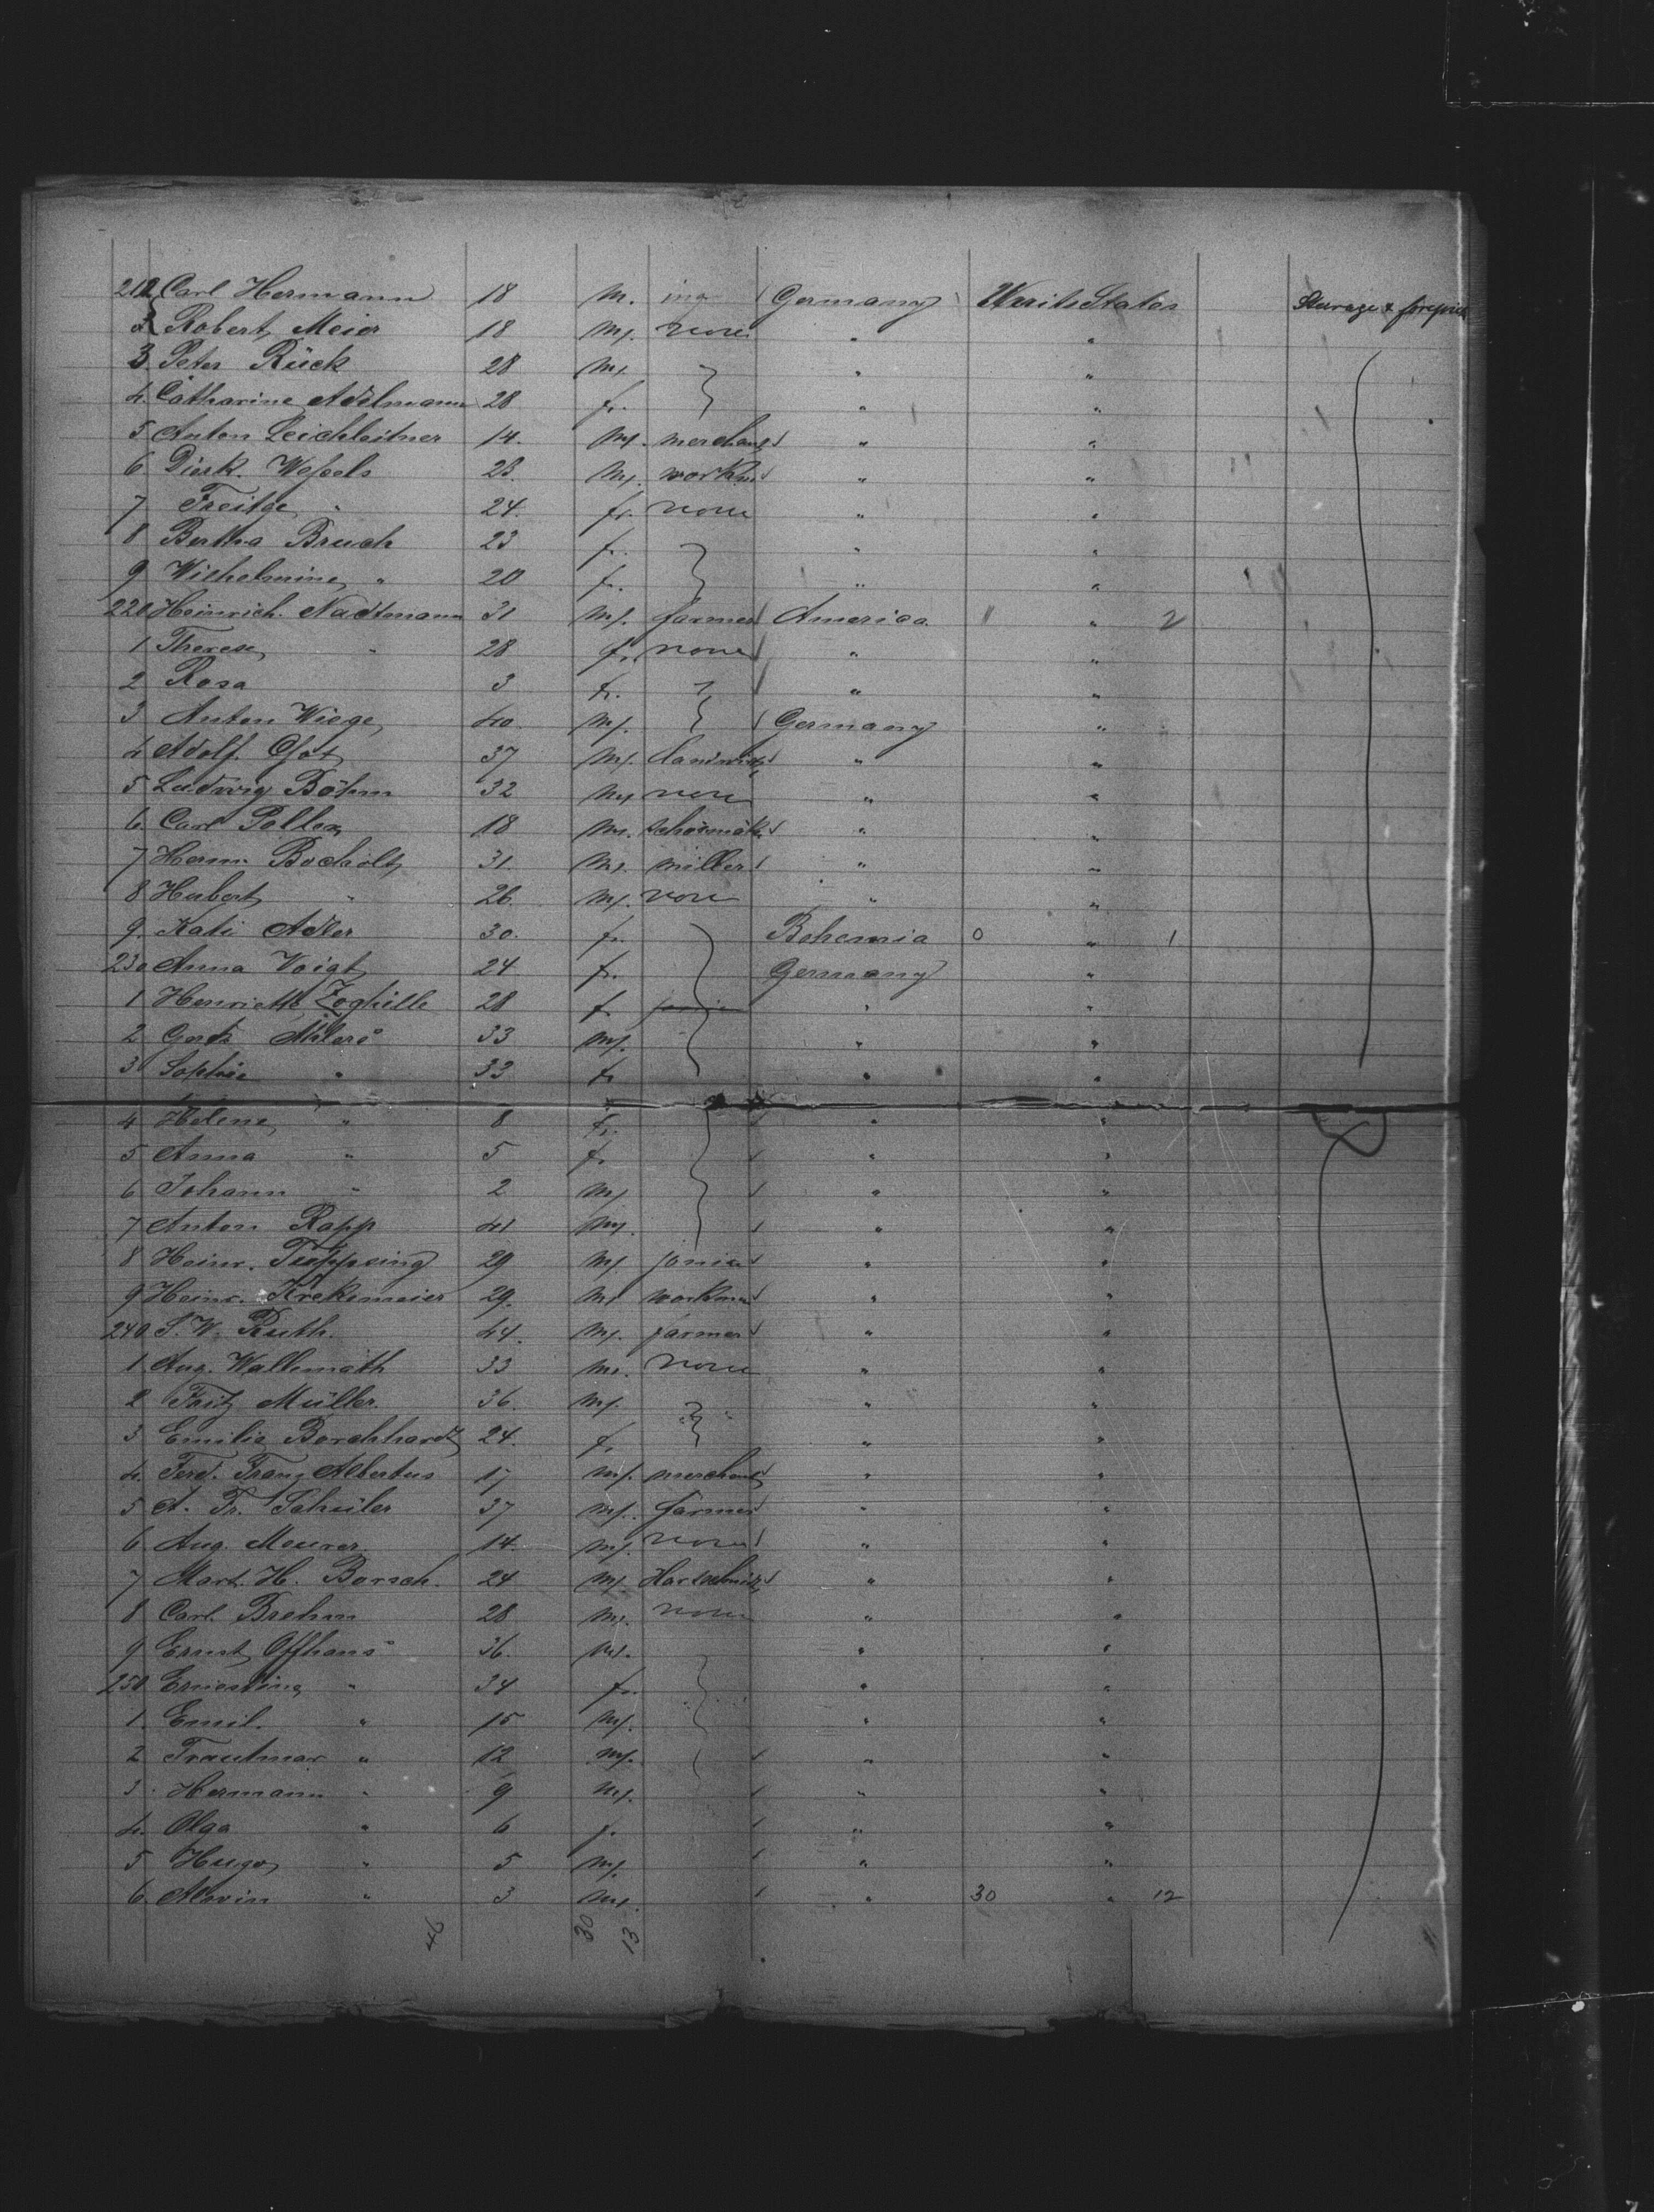 212 Carl Hermann 18 m. ing Germany Unit. States Steerage &
3 Robert Meier 18 m. none " "
3 Peter Rück 28 m. " "
4. Catharine Adelmann 28 f. " "
5 Anton Leichleitner 14. m. merchant " "
6 Dierk. Wessels 23. m. workm " "
7 Freitge " 24. f. none " "
8 Bertha Bruch 23 f. " "
9 Wilhelmine " 20 f. " "
220 Heinrich Nadtmann 31 m. farmer America " 2
1 Therese " 28 f. none " "
2 Rosa 3 f. " "
3 Anton Wiege 40 m. Germany "
4 Adolf 37 m. " "
5 Ludwig Böhm 32 m. none " "
6. Carl Peller 18 m. " "
7 Herm. Bocholt 31. m. miller " "
8 Hubert " 26. m. none " "
9. Kati Adler 30. f. Bohemia 0 " 1
230 Anna Voigt 24 f. Germany "
1 Henriette 28 f. " "
2 Gerh. Ahlers 33 m. " "
3 Sophie " 33 f. " "
4 Helene " 8 f. " "
5 Anna " 5 f. " "
6 Johann " 2 m. " "
7 Anton Rapp 41 m. " "
8 Heinr. 29 m. " "
9 Heinr. Krekemeier 29. m. workman " "
240 S. W. Ruth. 44. m. farmer " "
1 Aug. Wallemath 33 m. none " "
2 Fritz Müller. 36. m. " "
3 Emilie Borchhardt 24. f. " "
4. Ferd. Franz Albertus 17 m. merchant " "
5 A. Fr. Schuiler 37 m. farmer " "
6 Aug. Meurer 14. m. none " "
7 Mart. H. Borsch. 24 m. " "
8 Carl Brehm 28 m. none " "
9 Ernst Offhaus 36. m. " "
250 Ernestine " 34 f. " "
1. Emil. " 15 m. " "
2 Trautmar " 12 m. " "
3 Hermann " 9 m. " "
4. Olga " 6 f. " "
5 Hugo " 5 m. " "
6. Alwin " 3 m. " 30 " 12
46 30 13